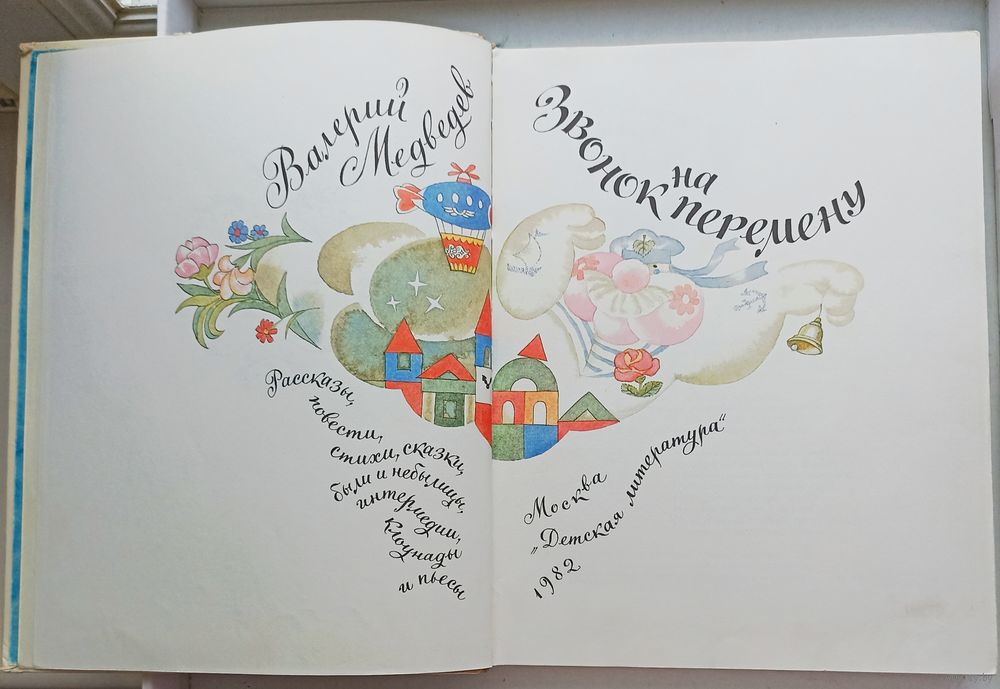 Валерий
Медведев
Звонок
на
перемену
Рассказы,
повести,
стихи, сказки,
были и небылицы,
интермедии,
клоунады
и пьесы
Москва
„Детская литература“
1982